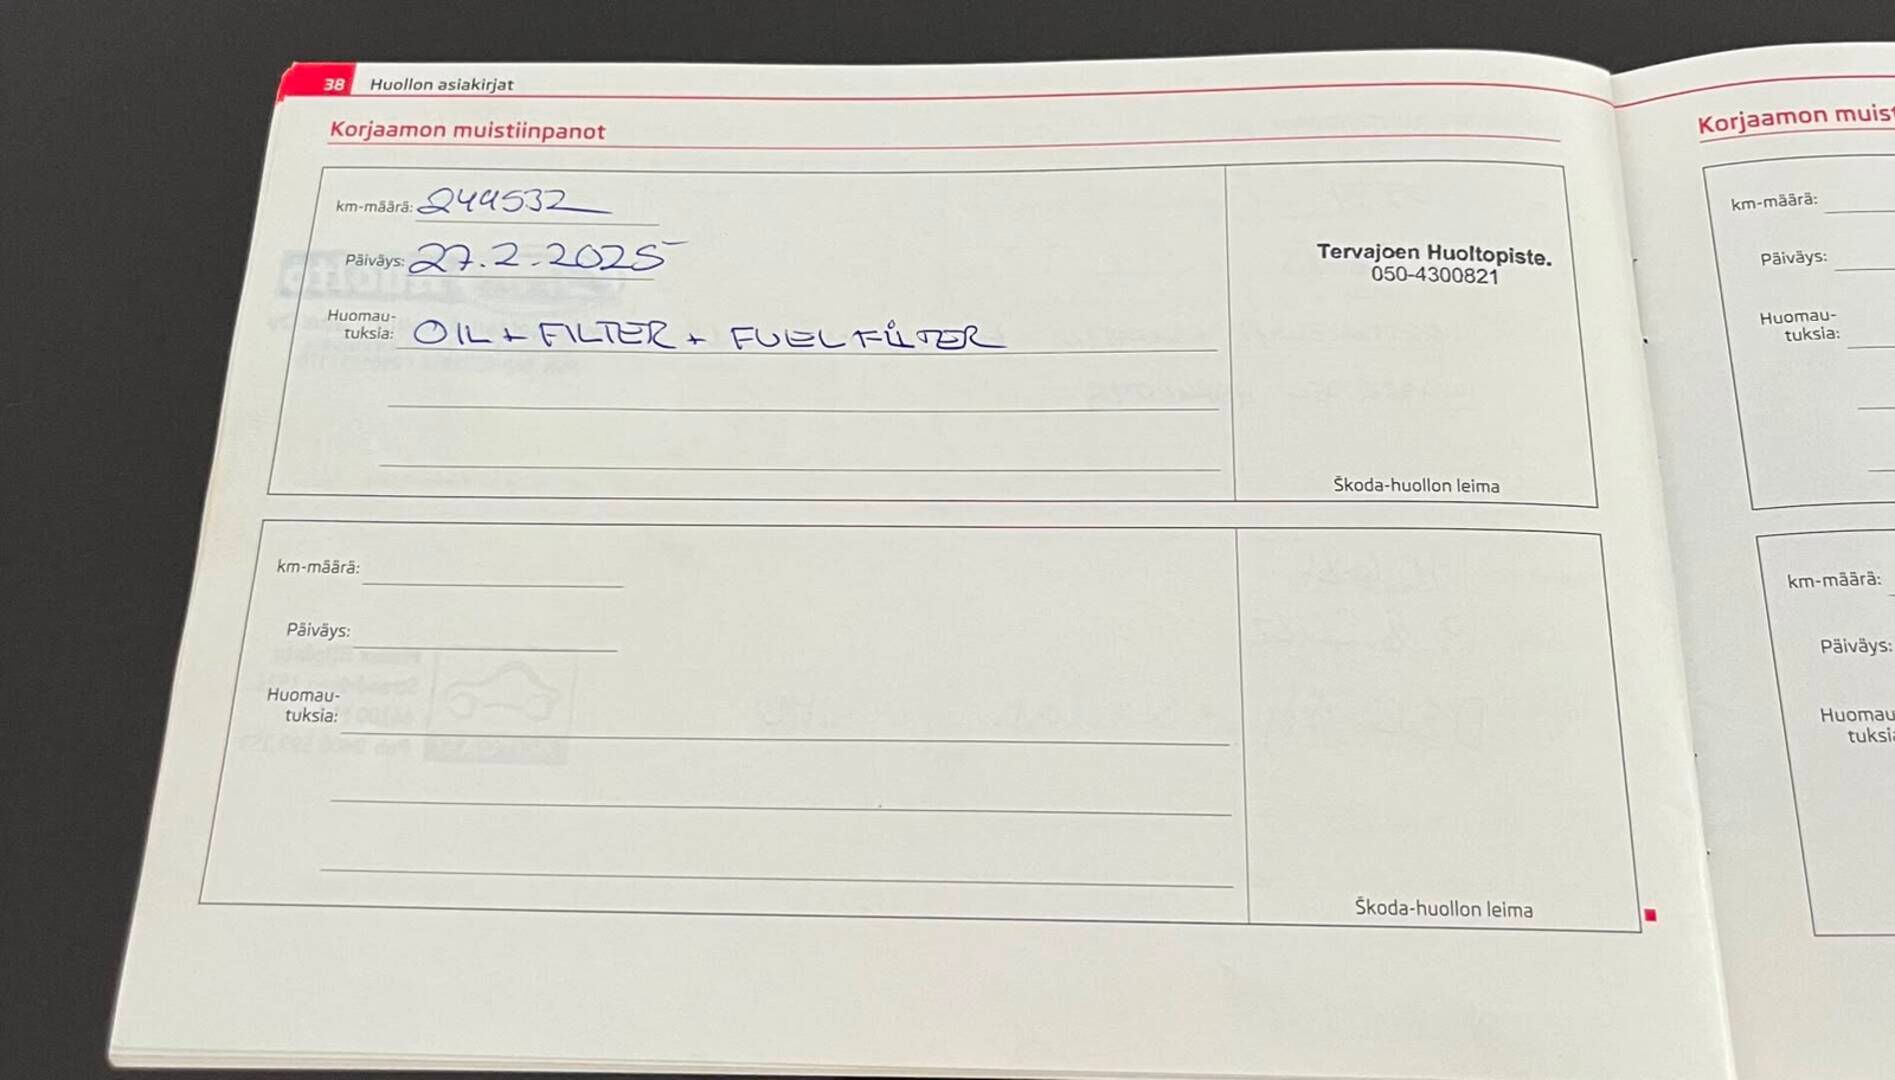 38 Huollon asiakirjat
Korjaamon muistiinpanot
km-määrä: 244532
Päiväys: 27.2.2025
Huomau-
tuksia: OIL + FILTER + FUEL FILTER
Tervajoen Huoltopiste.
050-4300821
Škoda-huollon leima
km-määrä:
Päiväys:
Huomau-
tuksia:
Škoda-huollon leima
Korjaamon muist
km-määrä:
Päiväys:
Huomau-
tuksia:
km-määrä:
Päiväys:
Huomau
tuksia